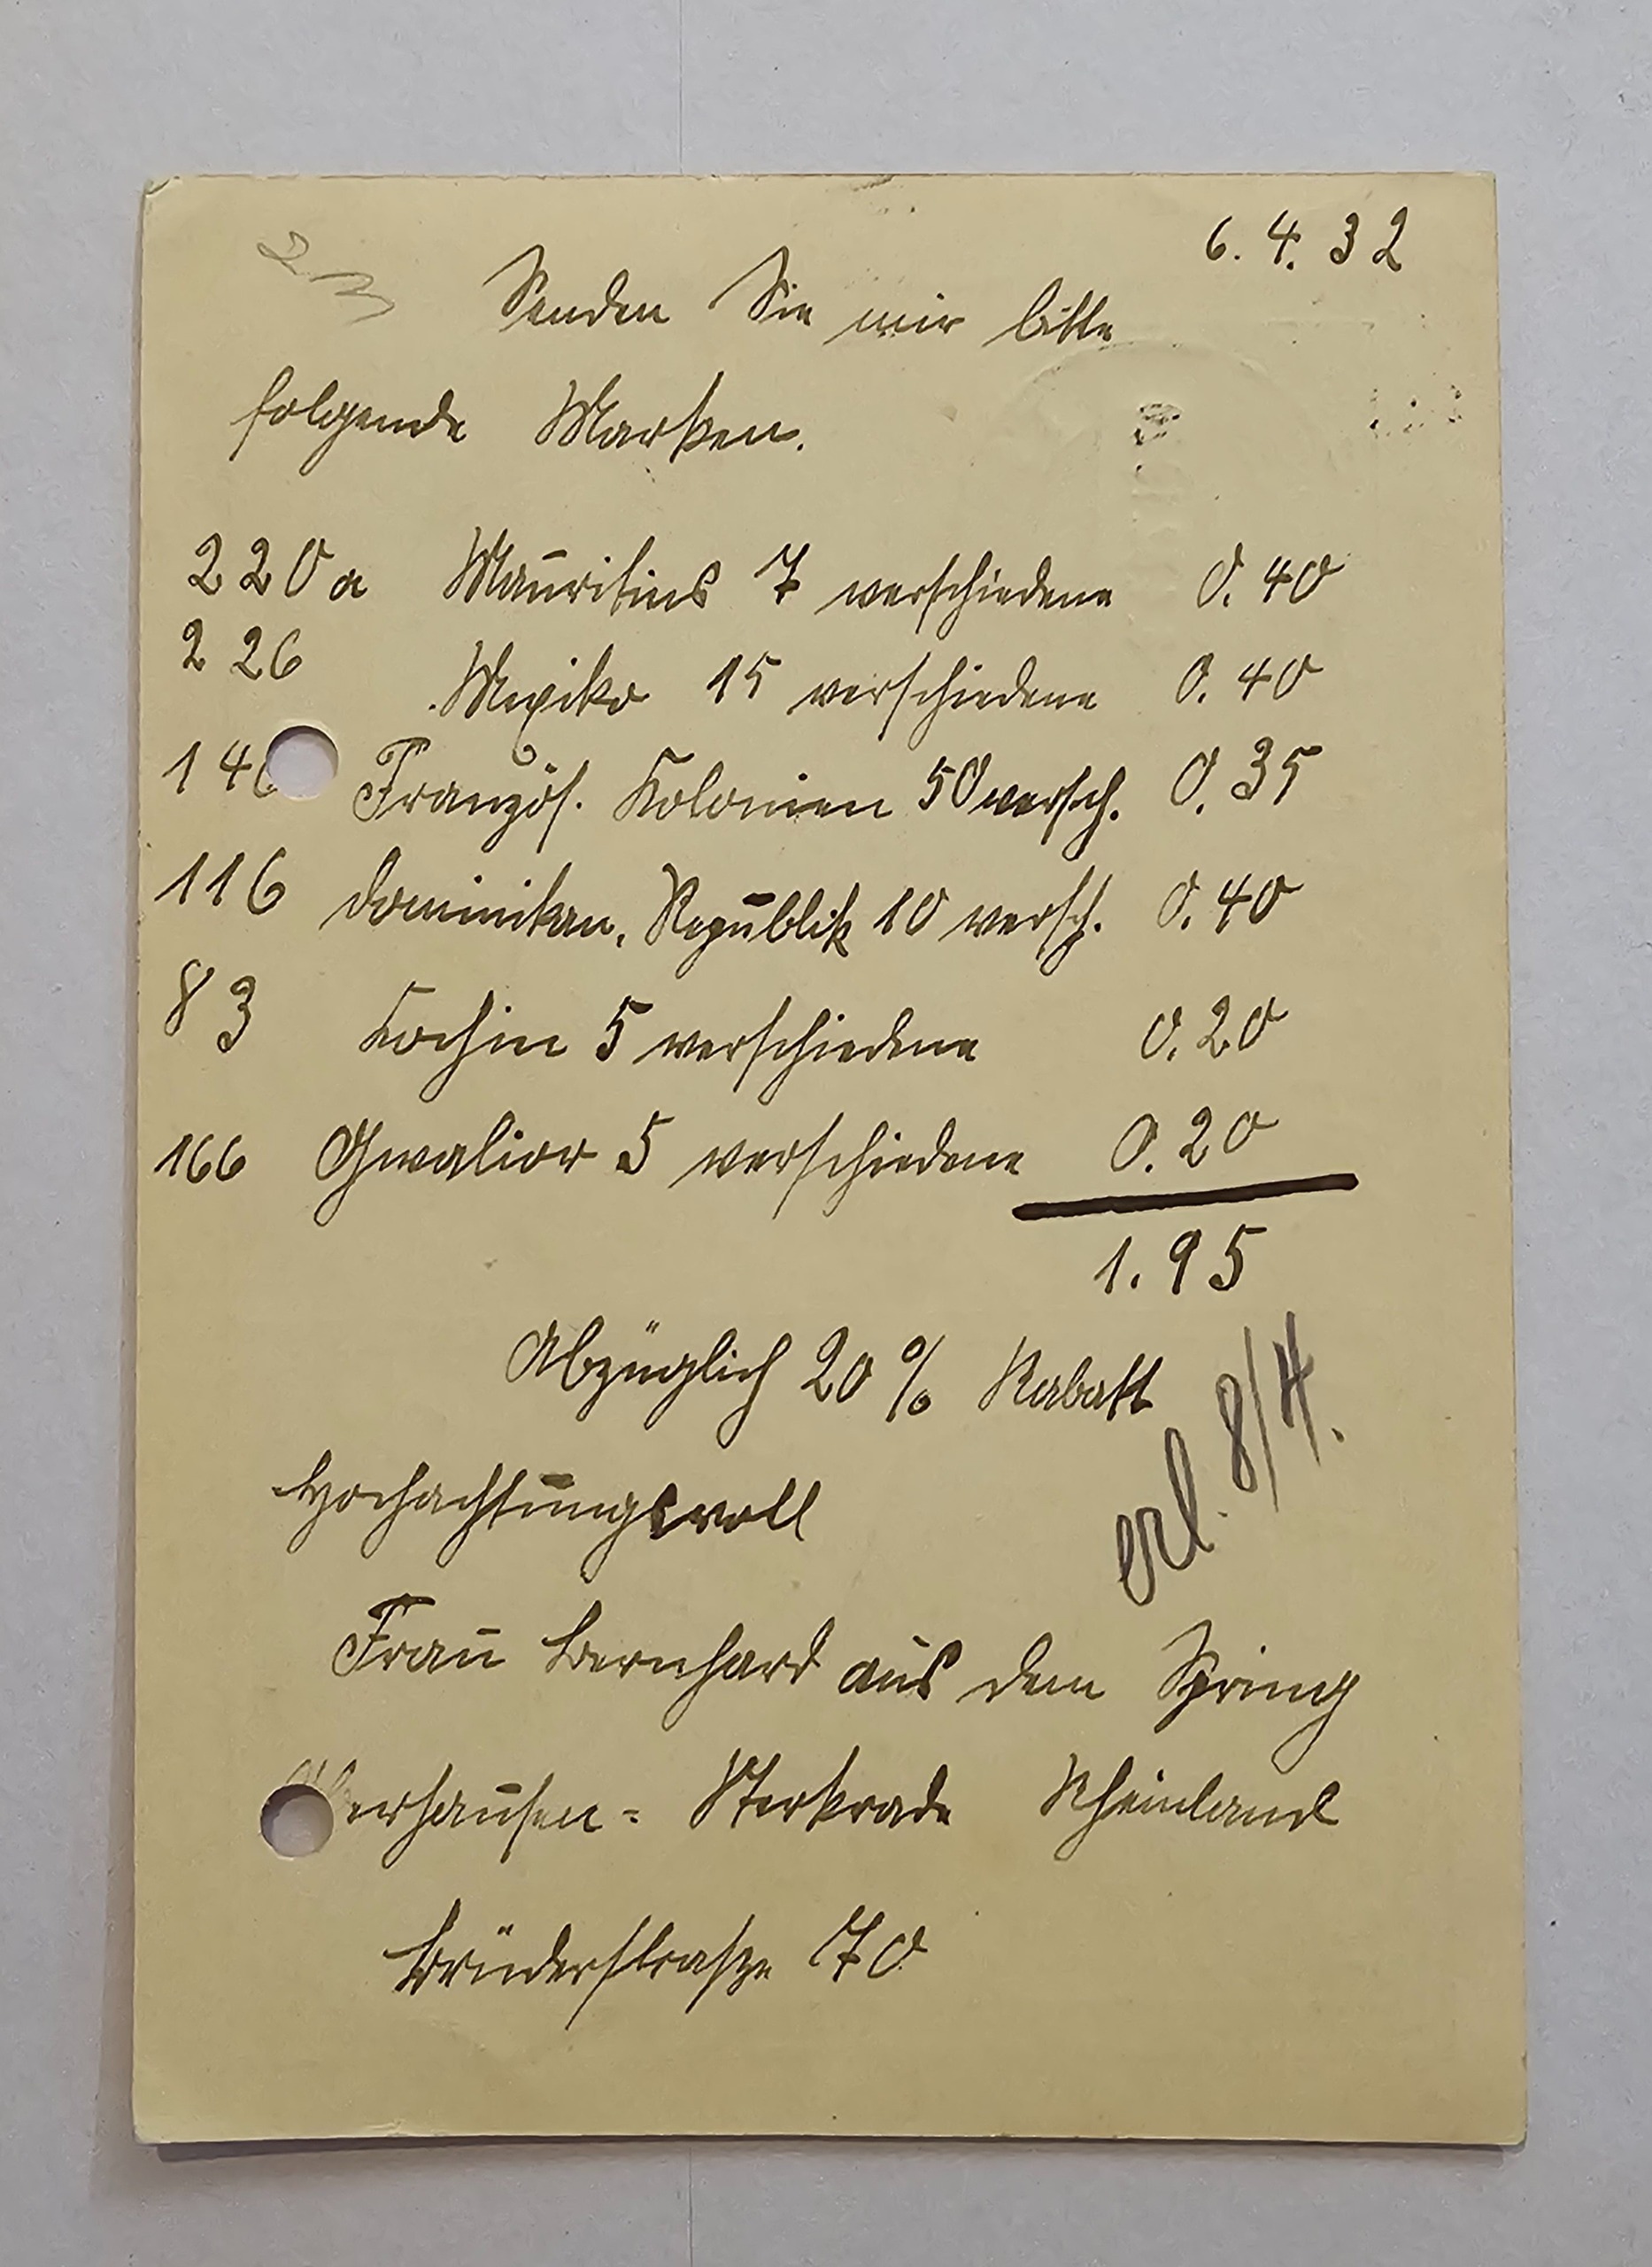 6. 4. 32
Senden Sie mir bitte
folgende Marken.
220a Mauritius 7 verschiedene 0.40
226 Mexiko 15 verschiedene 0.40
14 Französ. Kolonien 50 versch. 0.35
116 Dominikan. Republik 10 versch. 0.40
83 Kochin 5 verschiedene 0.20
166 Gwalior 5 verschiedene 0.20
1.95
Abzüglich 20% Rabatt
erl. 8/4.
Hochachtungsvoll
Frau Bernhard aus dem Spring
Oberhausen = Sterkrade Rheinland
Brüderstrasze 70